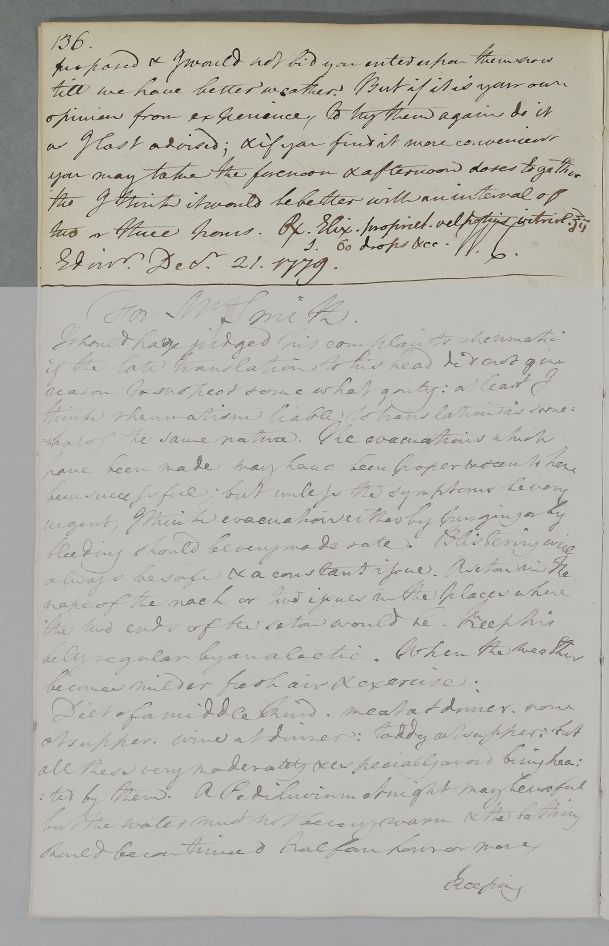 136.
proposed & I would not bid you enter upon them now
till we have better weather. But if it is your own
opinion from experience, to try them again do it
as I last advised; & if you find it more convenient
you may take the forenoon & afternoon doses together
tho I think it would be better with an interval of
two or three hours. Rx. Elix. propriet. vel potius vitriol.
60 drops &cc. W. C.
Edinr. Decr. 21. 1779.
For Mr Smith.
I should have judged his complaints rheumatic
if the late translation to his head did not give
reason to suspect somewhat gouty: at least I
think rheumatism liable to translation is some:
:what of the same nature. The evacuations which
have been made may have been proper & seem to have
been successful; but unless the symptoms be very
urgent, I think evacuation either by purging or by
bleeding should be very moderate. Blistering will
always be safe & a constant issue. A seton in the
nape of the neck or two issues in the places where
the two ends of the seton would be. Keep his
belly regular by an alactic. When the weather
becomes milder fresh air & exercise.
Diet of a middle kind. meat at dinner. none
at supper. wine at dinner: toddy at supper: but
all these very moderately & especially avoid being hea:
:ted by them. A Pediluvium at night may be useful
but the water must not be very warm & the bathing
should be continued half an hour or more,
Keeping